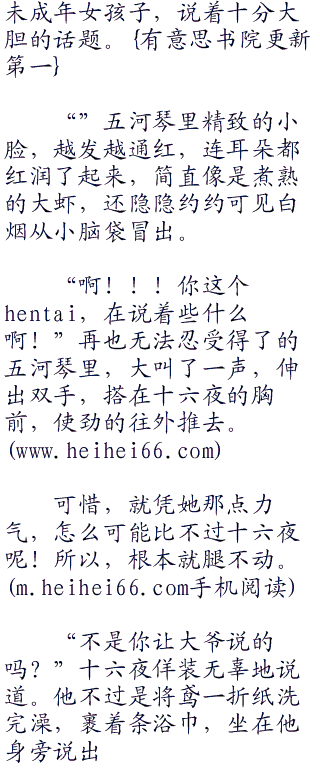 未成年女孩子，说着十分大
胆的话题。{有意思书院更新
第一}
“”五河琴里精致的小
脸，越发越通红，连耳朵都
红润了起来，简直像是煮熟
的大虾，还隐隐约约可见白
烟从小脑袋冒出。
“啊！！！你这个
hentai，在说着些什么
啊！”再也无法忍受得了的
五河琴里，大叫了一声，伸
出双手，搭在十六夜的胸
前，使劲的往外推去。
(www.heihei66.com)
可惜，就凭她那点力
气，怎么可能比不过十六夜
呢！所以，根本就腿不动。
(m.heihei66.com手机阅读)
“不是你让大爷说的
吗？”十六夜佯装无辜地说
道。他不过是将鸢一折纸洗
完澡，裹着条浴巾，坐在他
身旁说出